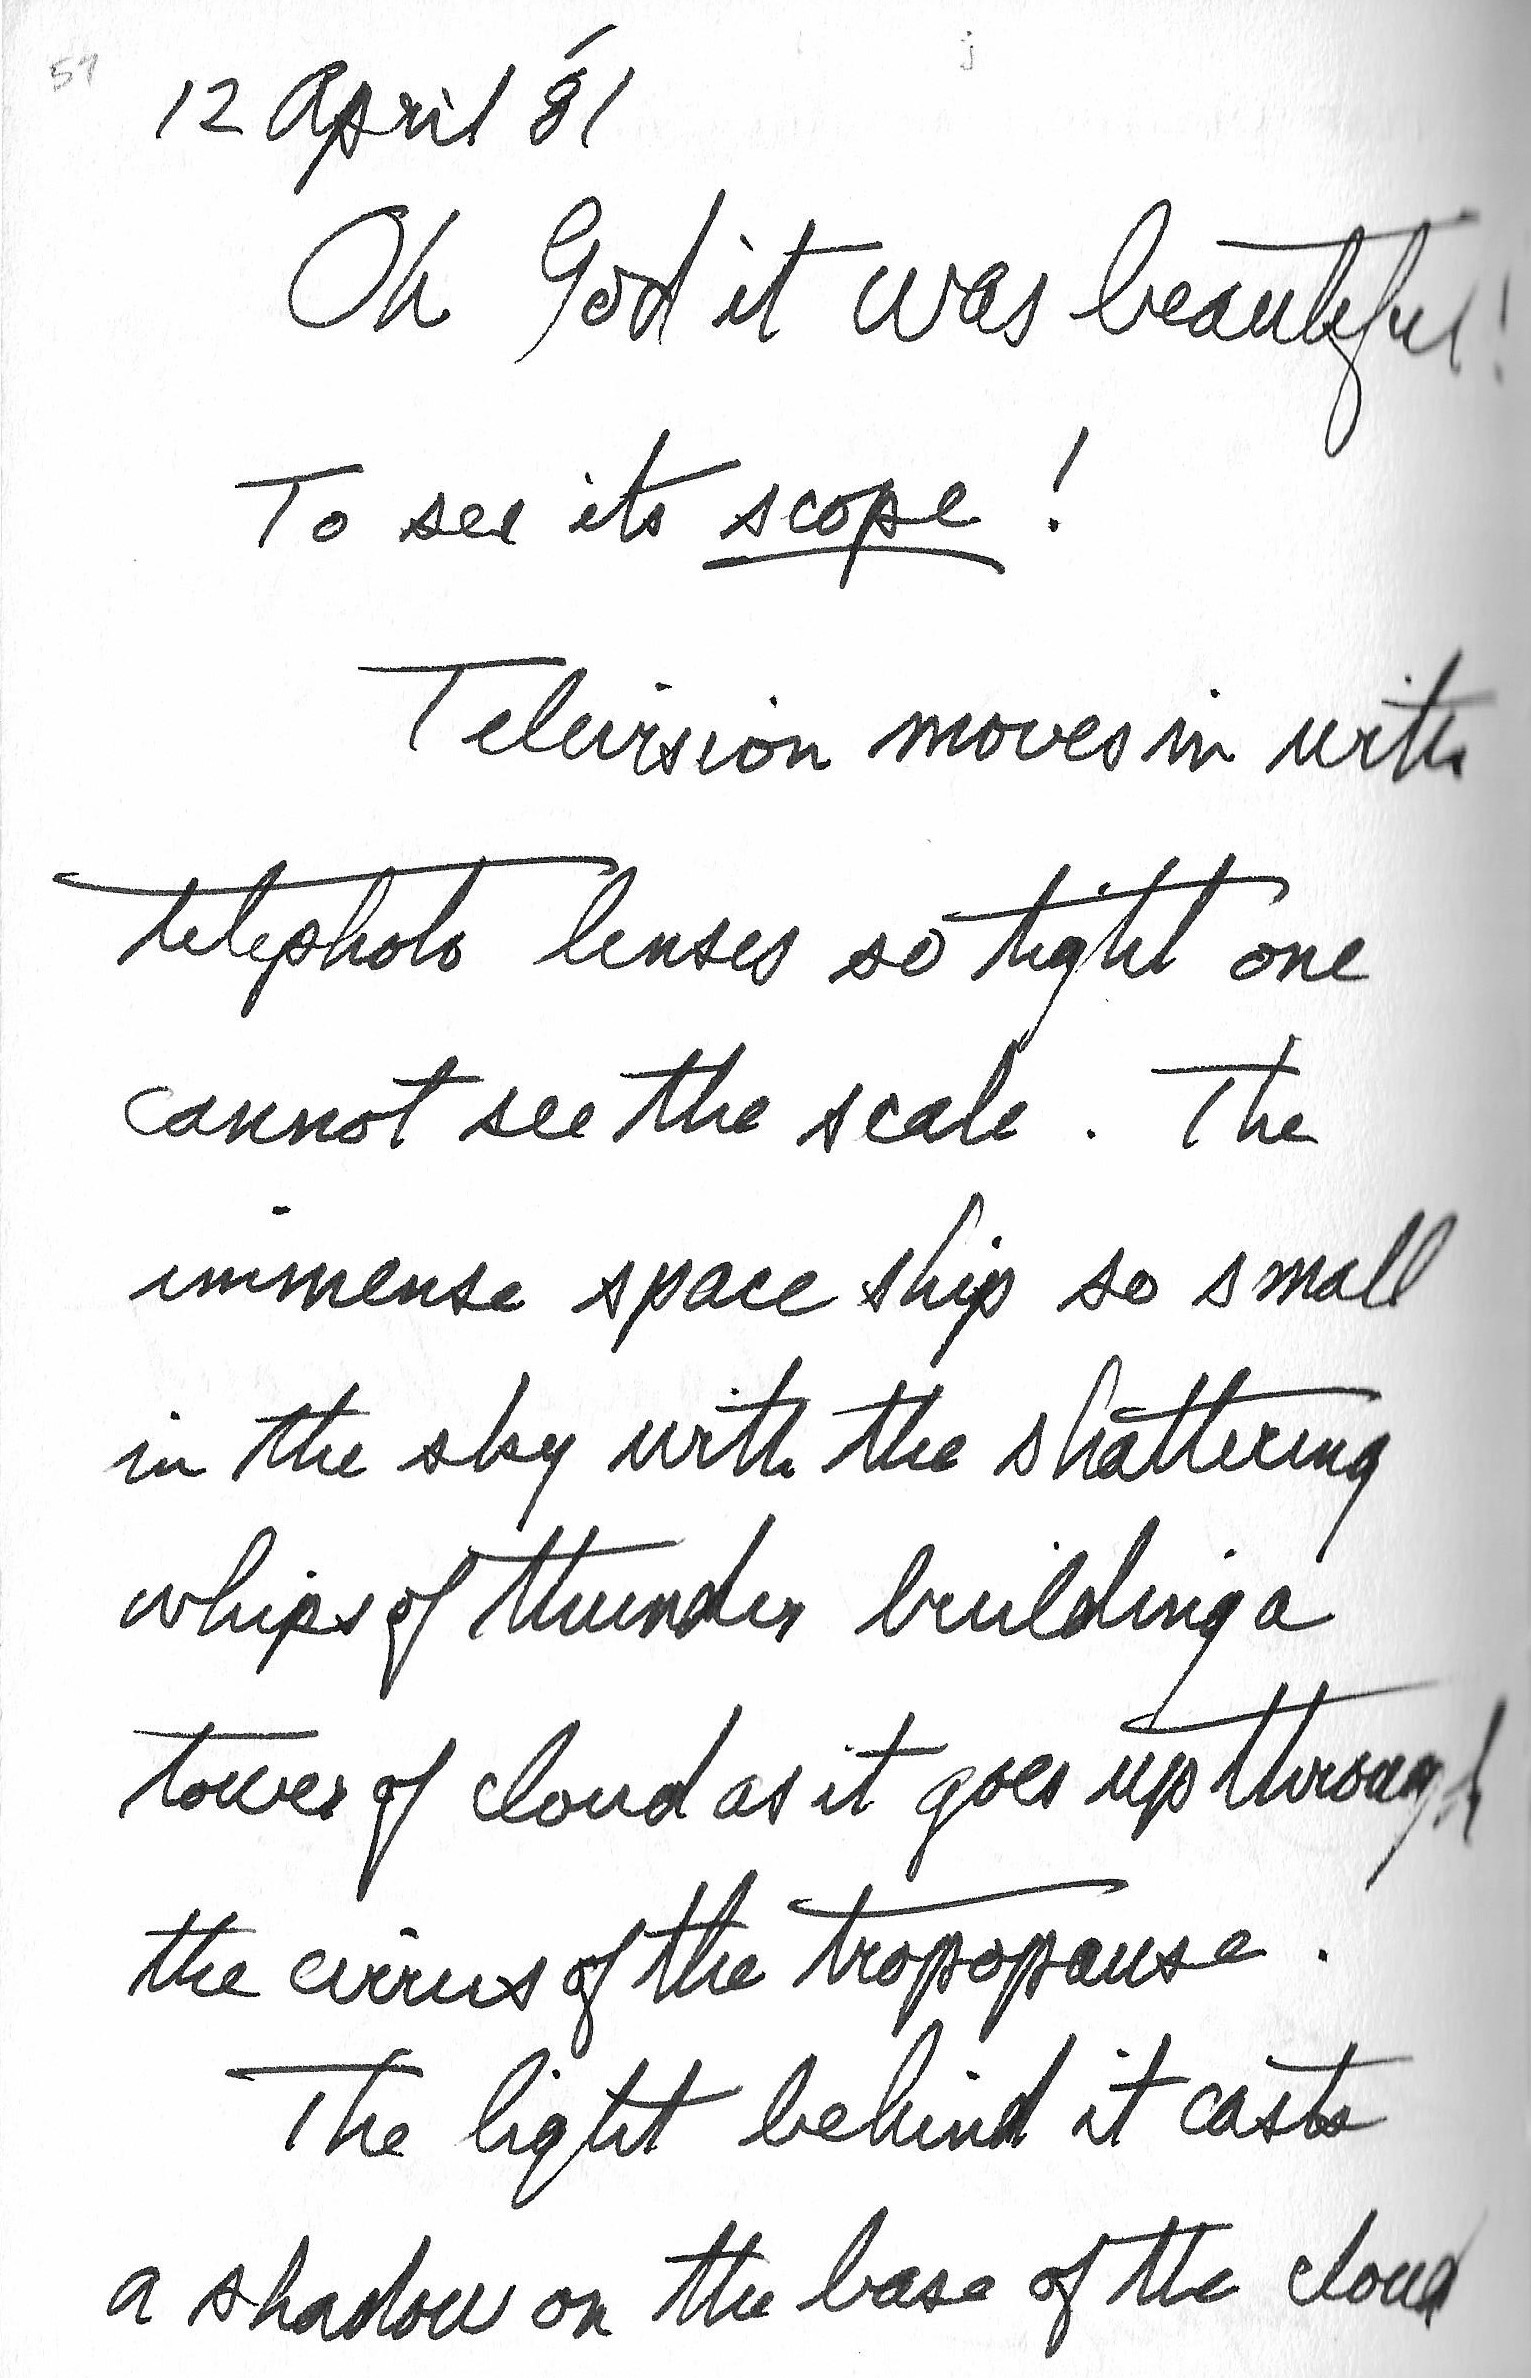 57
12 April '81
Oh God it was beautiful!
To see its scope!
Television moves in with
telephoto lenses so tight one
cannot see the scale. The
immense space ship so small
in the sky with the shattering
whips of thunder building a
tower of cloud as it goes up through
the cirrus of the tropopause.
The light behind it casts
a shadow on the base of the cloud